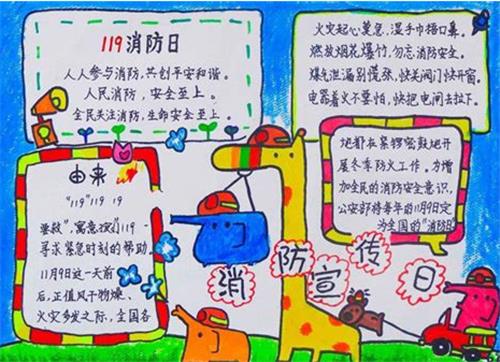 119消防日
人人参与消防，共创平安和谐。
人民消防，安全至上。
全民关注消防，生命安全至上。
火灾起心莫急，湿手巾捂口鼻。
燃放烟花爆竹，勿忘消防安全。
煤气泄漏别慌张，快关阀门快开窗。
电器着火不要怕，快把电闸去拉下。
由来
"119" "119 19
寓意我们119
寻求紧急时刻的帮助。
11月9日这一天前
后，正值风干物燥、
火灾多发之际，全国各
地都在紧锣密鼓地开
展冬季防火工作。为增
加全民的消防安全意识，
公安部将每年的11月9日定
为全国的"消防日
消防宣传日